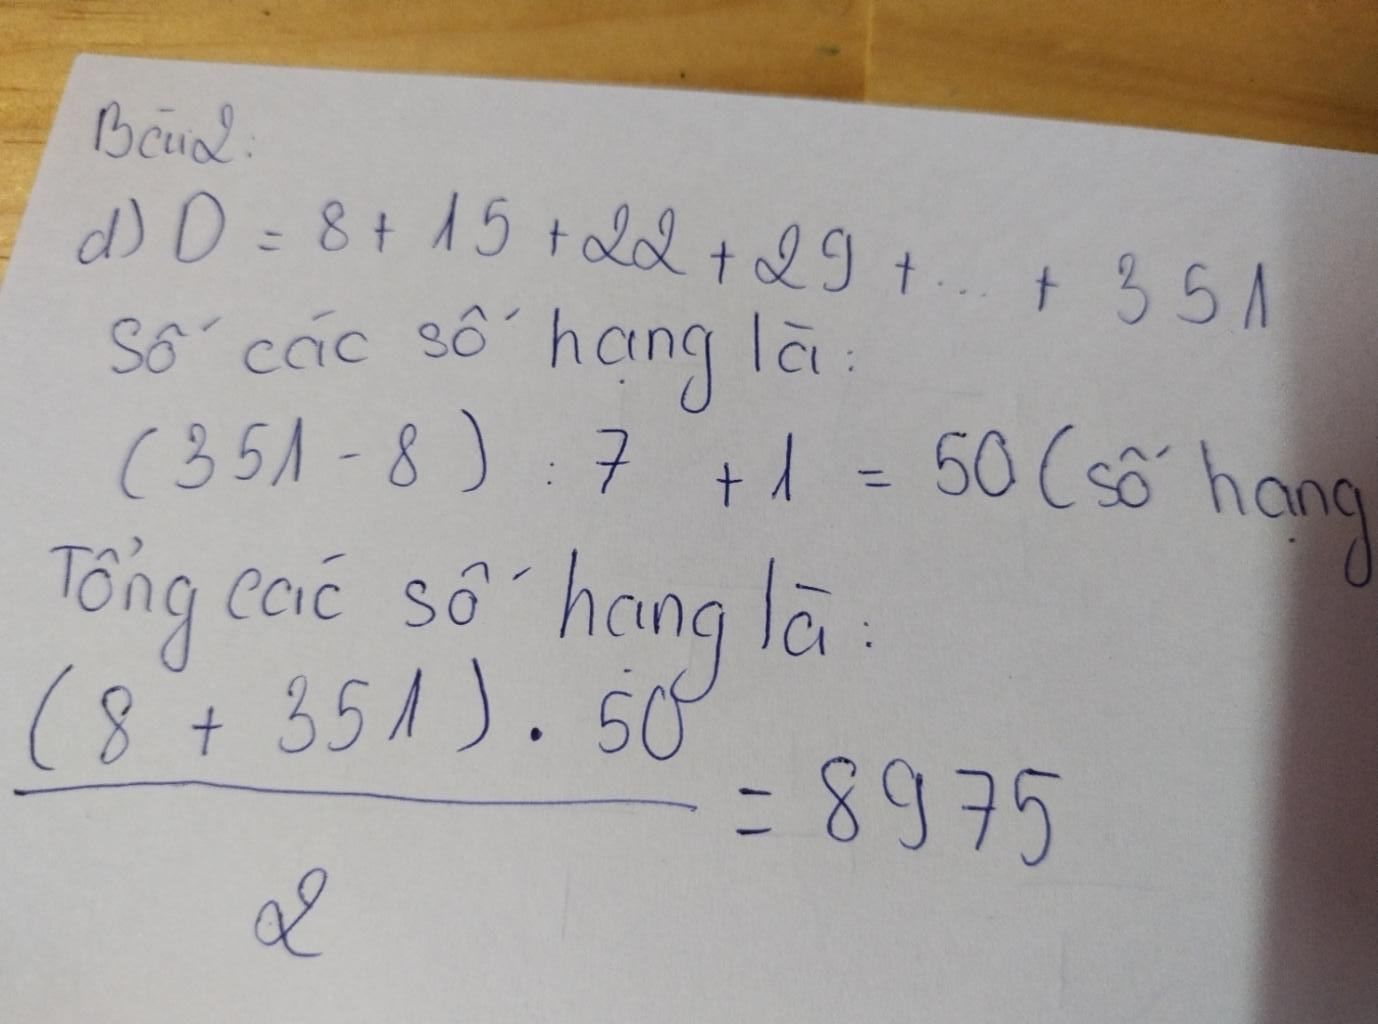 Bài 2:
d) D = 8 + 15 + 22 + 29 + ... + 351
Số các số hạng là:
(351 - 8) : 7 + 1 = 50 (số hạng
Tổng các số hạng là:
(8 + 351) . 50
= 8975
2